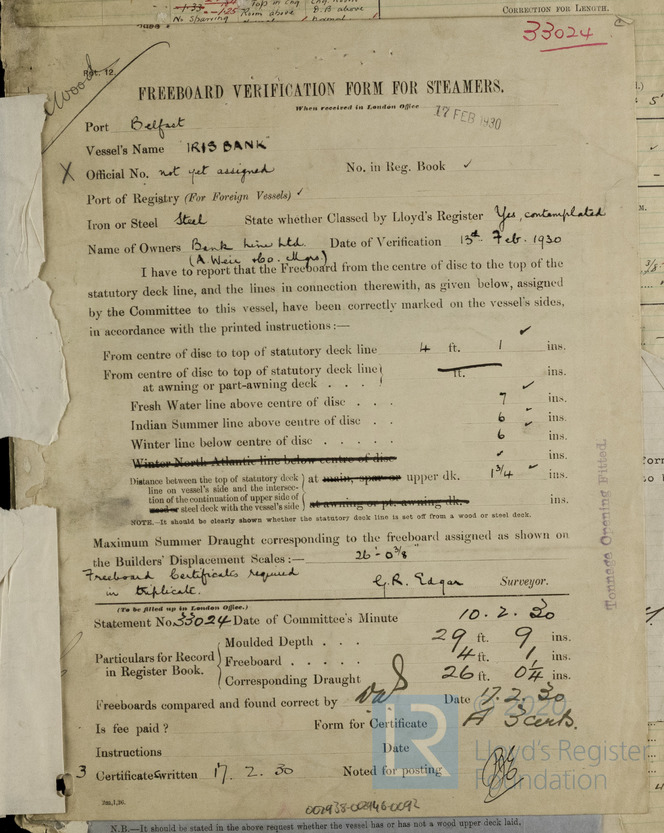 Top in Eng
No Sharing Room above D.B above
CORRECTION FOR LENGTH.
33024
Wood
Rpt. 12.
FREEBOARD VERIFICATION FORM FOR STEAMERS.
When received in London Office 17 FEB 1930
Port Belfast
Vessel's Name IRISBANK
X Official No. not yet assigned No. in Reg. Book ✓
Port of Registry (For Foreign Vessels) ✓
Iron or Steel Steel State whether Classed by Lloyd's Register Yes, contemplated
Name of Owners Bank Line Ltd. Date of Verification 13th Feb. 1930
(A. Weir & Co. Mgrs)
I have to report that the Freeboard from the centre of disc to the top of the
statutory deck line, and the lines in connection therewith, as given below, assigned
by the Committee to this vessel, have been correctly marked on the vessel's sides,
in accordance with the printed instructions:—
From centre of disc to top of statutory deck line 4 ft. 1 ins.
From centre of disc to top of statutory deck line
at awning or part-awning deck . . . ft. ins.
Fresh Water line above centre of disc . . . 7 ins.
Indian Summer line above centre of disc . . 6 ins.
Winter line below centre of disc . . . . . 6 ins.
Winter North Atlantic line below centre of disc ins.
Distance between the top of statutory deck
line on vessel's side and the intersec-
tion of the continuation of upper side of
wood or steel deck with the vessel's side
at main, spar or upper dk. 1 3/4 ins.
at awning or pt. awning dk. ins.
NOTE.—It should be clearly shown whether the statutory deck line is set off from a wood or steel deck.
Maximum Summer Draught corresponding to the freeboard assigned as shown on
the Builders' Displacement Scales:— 26'-0 3/8"
Freeboard Certificates required
in triplicate.
G.R. Edgar Surveyor.
Tonnage Opening Fitted.
(To be filled up in London Office.)
Statement No. 33024 Date of Committee's Minute 10.2.30
Particulars for Record
in Register Book.
Moulded Depth . . . 29 ft. 9 ins.
Freeboard . . . . . 4 ft. 1 ins.
Corresponding Draught 26 ft. 0 1/4 ins.
Freeboards compared and found correct by Date 17.2.30
Is fee paid ? Form for Certificate A 3 certs.
Instructions Date
3 Certificates written 17.2.30 Noted for posting
2m,1,30.
002938-002946-0092
N.B.—It should be stated in the above request whether the vessel has or has not a wood upper deck laid.
LR
© 2020
Lloyd's Register
Foundation